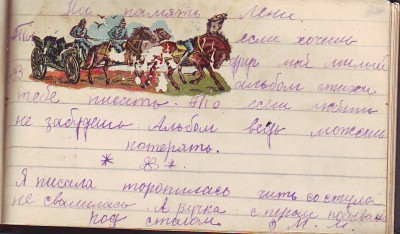 На память Лени.
То если хочешь
друг мой милый
В альбом стихи
тебе писать. То если любишь
не забудешь. Альбом ведь можешь
потерять.
Я писала торопилась чить со стула
не свалилась. А ручка с перам побывала
под сталом. М. М.